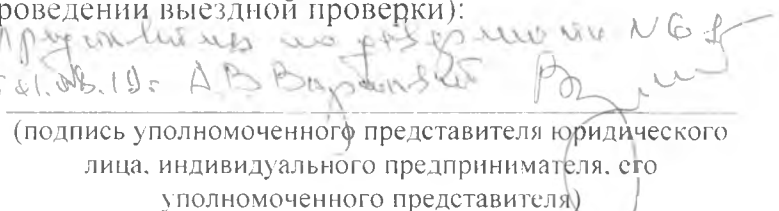 роведении выездной проверки):
Представитель по доверенности № 6
А В
(подпись уполномоченного представителя юридического
лица, индивидуального предпринимателя, его
уполномоченного представителя)